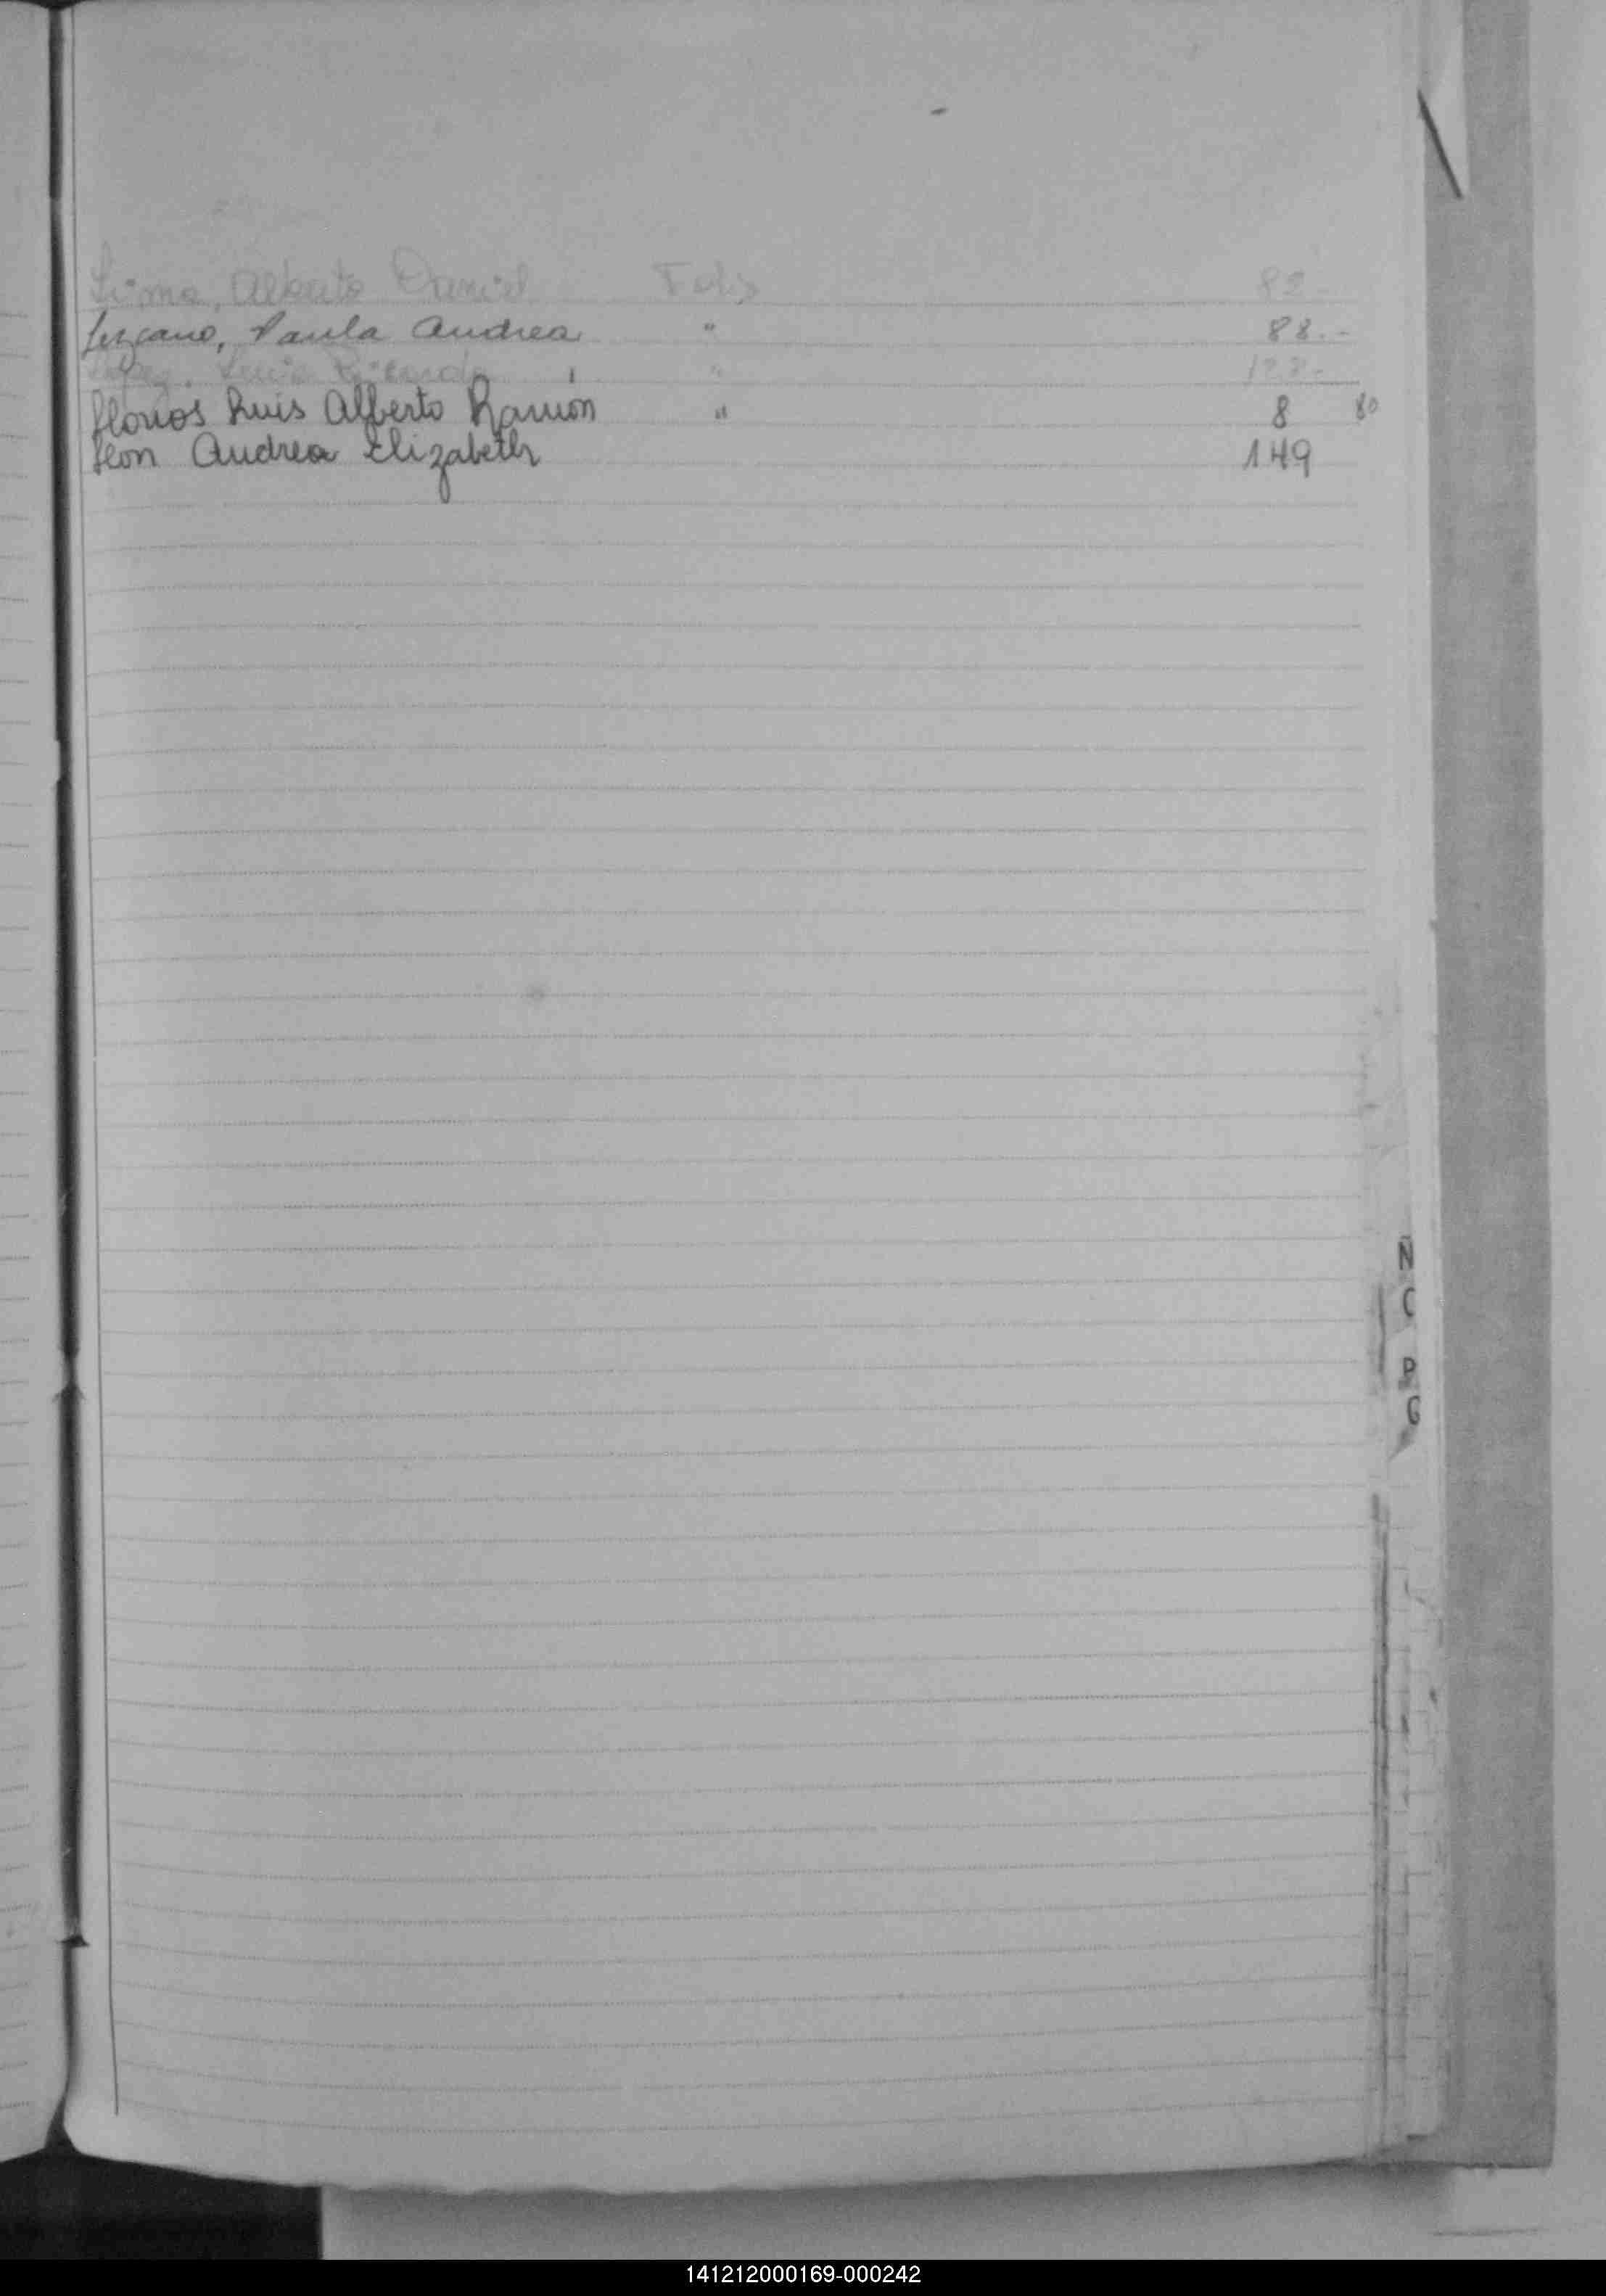 Lima, Alberto Daniel Folio 82 -
Lezcano, Paula Andrea " 88.-
López, Luis Ricardo " 128.-
Llanos Luis Alberto Ramón " 8 80
Leon Andrea Elizabeth 149
N
C
P
G
141212000169-000242